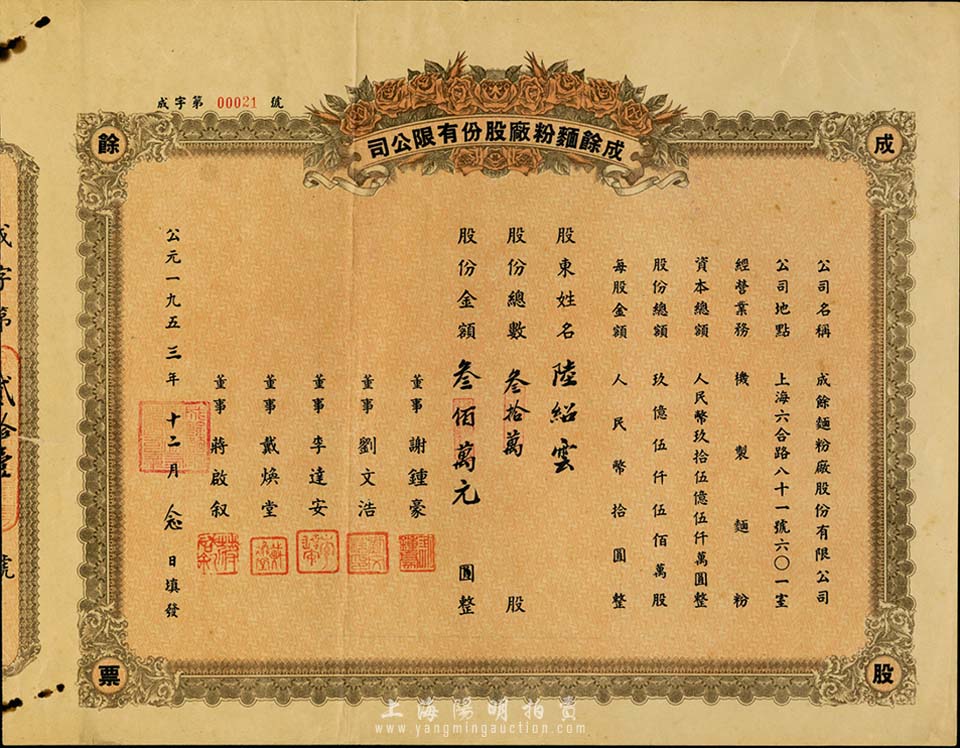 成字第 00021 號
成餘麵粉廠股份有限公司
成
餘
股
票
公司名稱 成餘麵粉廠股份有限公司
公司地點 上海六合路八十一號六〇一室
經營業務 機製麵粉
資本總額 人民幣玖拾伍億伍仟萬圓整
股份總額 玖億伍仟伍佰萬股
每股金額 人民幣拾圓整
股東姓名 陸紹雲
股份總數 叁拾萬 股
股份金額 叁佰萬元 圓整
董事 謝鍾豪
董事 劉文浩
董事 李達安
董事 戴煥堂
董事 蔣啟叙
公元一九五三年十二月念日填發
成字第 貳拾壹 號
上海陽明拍賣
www.yangmingauction.com